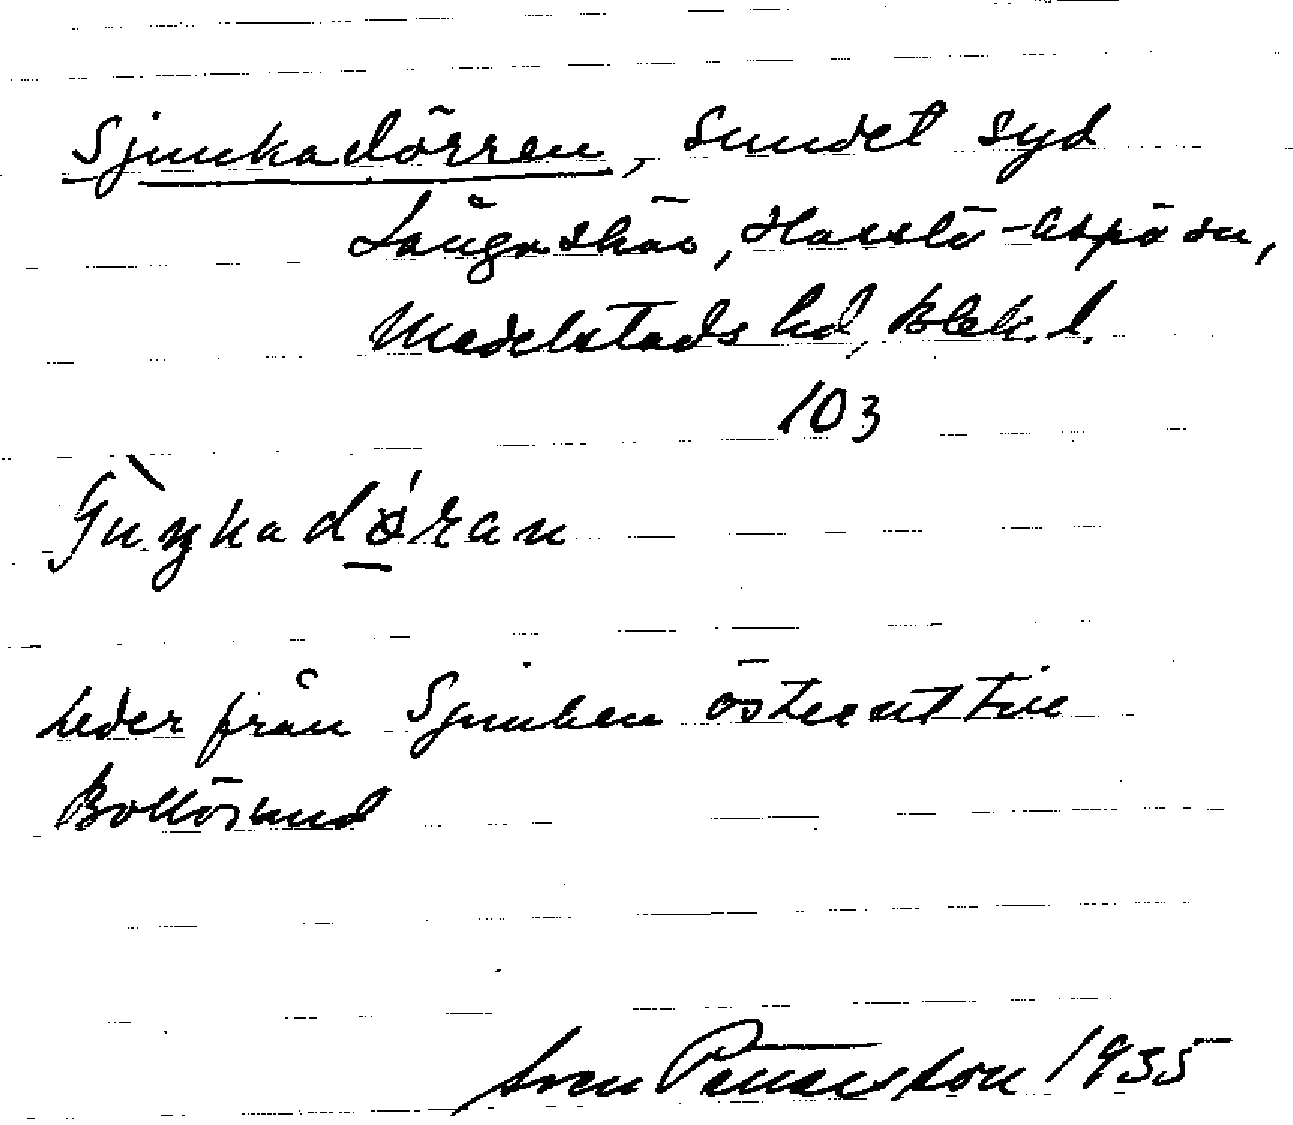 Sjunkadörren, Sundet syd
Långaskär, Hasslö-Aspö sn,
Medelstads hd, Blek. l.
103
ʃùŋkadǿran
leder från Sjunken österut till
Bollösund
Sven Pettersson 1935